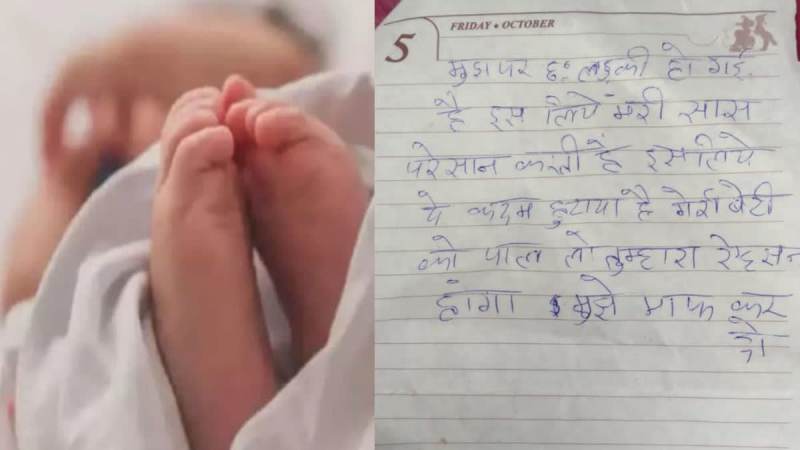 5
FRIDAY • OCTOBER
मुझ पर छः लड़की हो गई
है इस लिये मेरी सास
परेसान करती है इसलिये
ये कदम हुटाया है मेरी बेटी
को पाल लो तुम्हारा
होगा मुझे माफ कर
दो